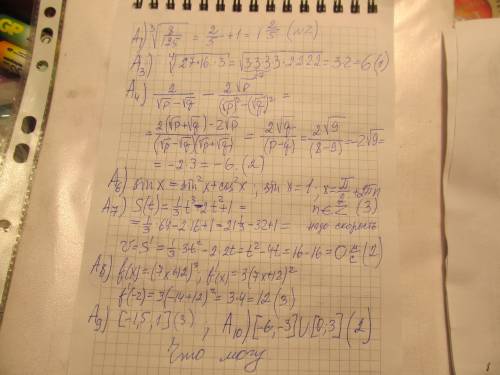 A₁) ∛(8/125) = 2/5 + 1 = 1 2/5 (№2)
A₃) ∜(27·16·3) = √(3·3·3·3·2·2·2·2) = 3·2 = 6 (1)
A₄) 2/(√p − √q) − 2√p/((√p)² − (√q)²) =
= (2(√p + √q) − 2√p)/((√p − √q)(√p + √q)) = 2√q/(p − q) = 2√9/(8 − 9) = −2√9 =
= −2·3 = −6. (2)
sin x = sin²x + cos²x ; sin x = 1 ; x = π/2 + 2πn
A₇) S(t) = 1/3 t³ − 2t² + 1 = n ∈ Z (3)
= 1/3 · 64 − 2·16 + 1 = 21 1/3 − 32 + 1 = надо скорость
v = S' = 1/3 · 3t² − 2·2t = t² − 4t = 16 − 16 = 0 м/с (2)
A₈) f(x) = (7x+12)³ ; f'(x) = 3(7x+12)²
f'(-2) = 3(−14+12)² = 3·4 = 12 (3)
A₉) [−1,5, 1] (3) , A₁₀) [−6,−3]∪[0,3] (2)
Что могу